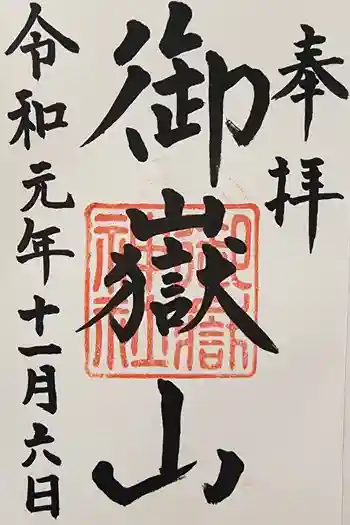 奉拝
御嶽山
御嶽神社
令和元年十一月六日